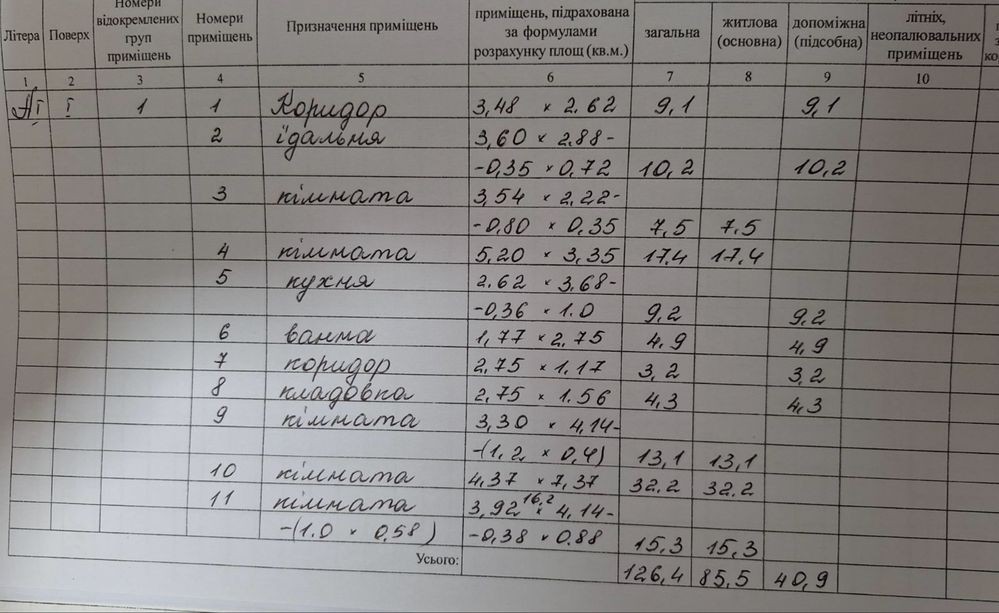 Номери
відокремлених
груп
приміщень
Літера Поверх Номери
приміщень Призначення приміщень
приміщень, підрахована
за формулами
розрахунку площ (кв.м.)
загальна житлова
(основна) допоміжна
(підсобна)
літніх,
неопалювальних
приміщень
1 2 3 4 5 6 7 8 9 10
АІ І 1 1 Коридор 3,48 × 2.62 9,1 9,1
2 їдальня 3,60 × 2.88-
-0,35 × 0,72 10,2 10,2
3 кімната 3,54 × 2,22-
-0,80 × 0,35 7,5 7,5
4 кімната 5,20 × 3,35 17.4 17,4
5 кухня 2.62 × 3,68-
-0,36 × 1.0 9,2 9,2
6 ванна 1,77 × 2,75 4,9 4,9
7 коридор 2,75 × 1,17 3,2 3,2
8 кладовка 2,75 × 1.56 4,3 4,3
9 кімната 3,30 × 4,14-
-(1,2 × 0,4) 13,1 13,1
10 кімната 4,37 × 7,37 32.2 32.2
11 кімната 3,92 16,2 × 4,14-
-(1.0 × 0,58) -0,38 × 0.88 15,3 15,3
Усього: 126,4 85,5 40,9